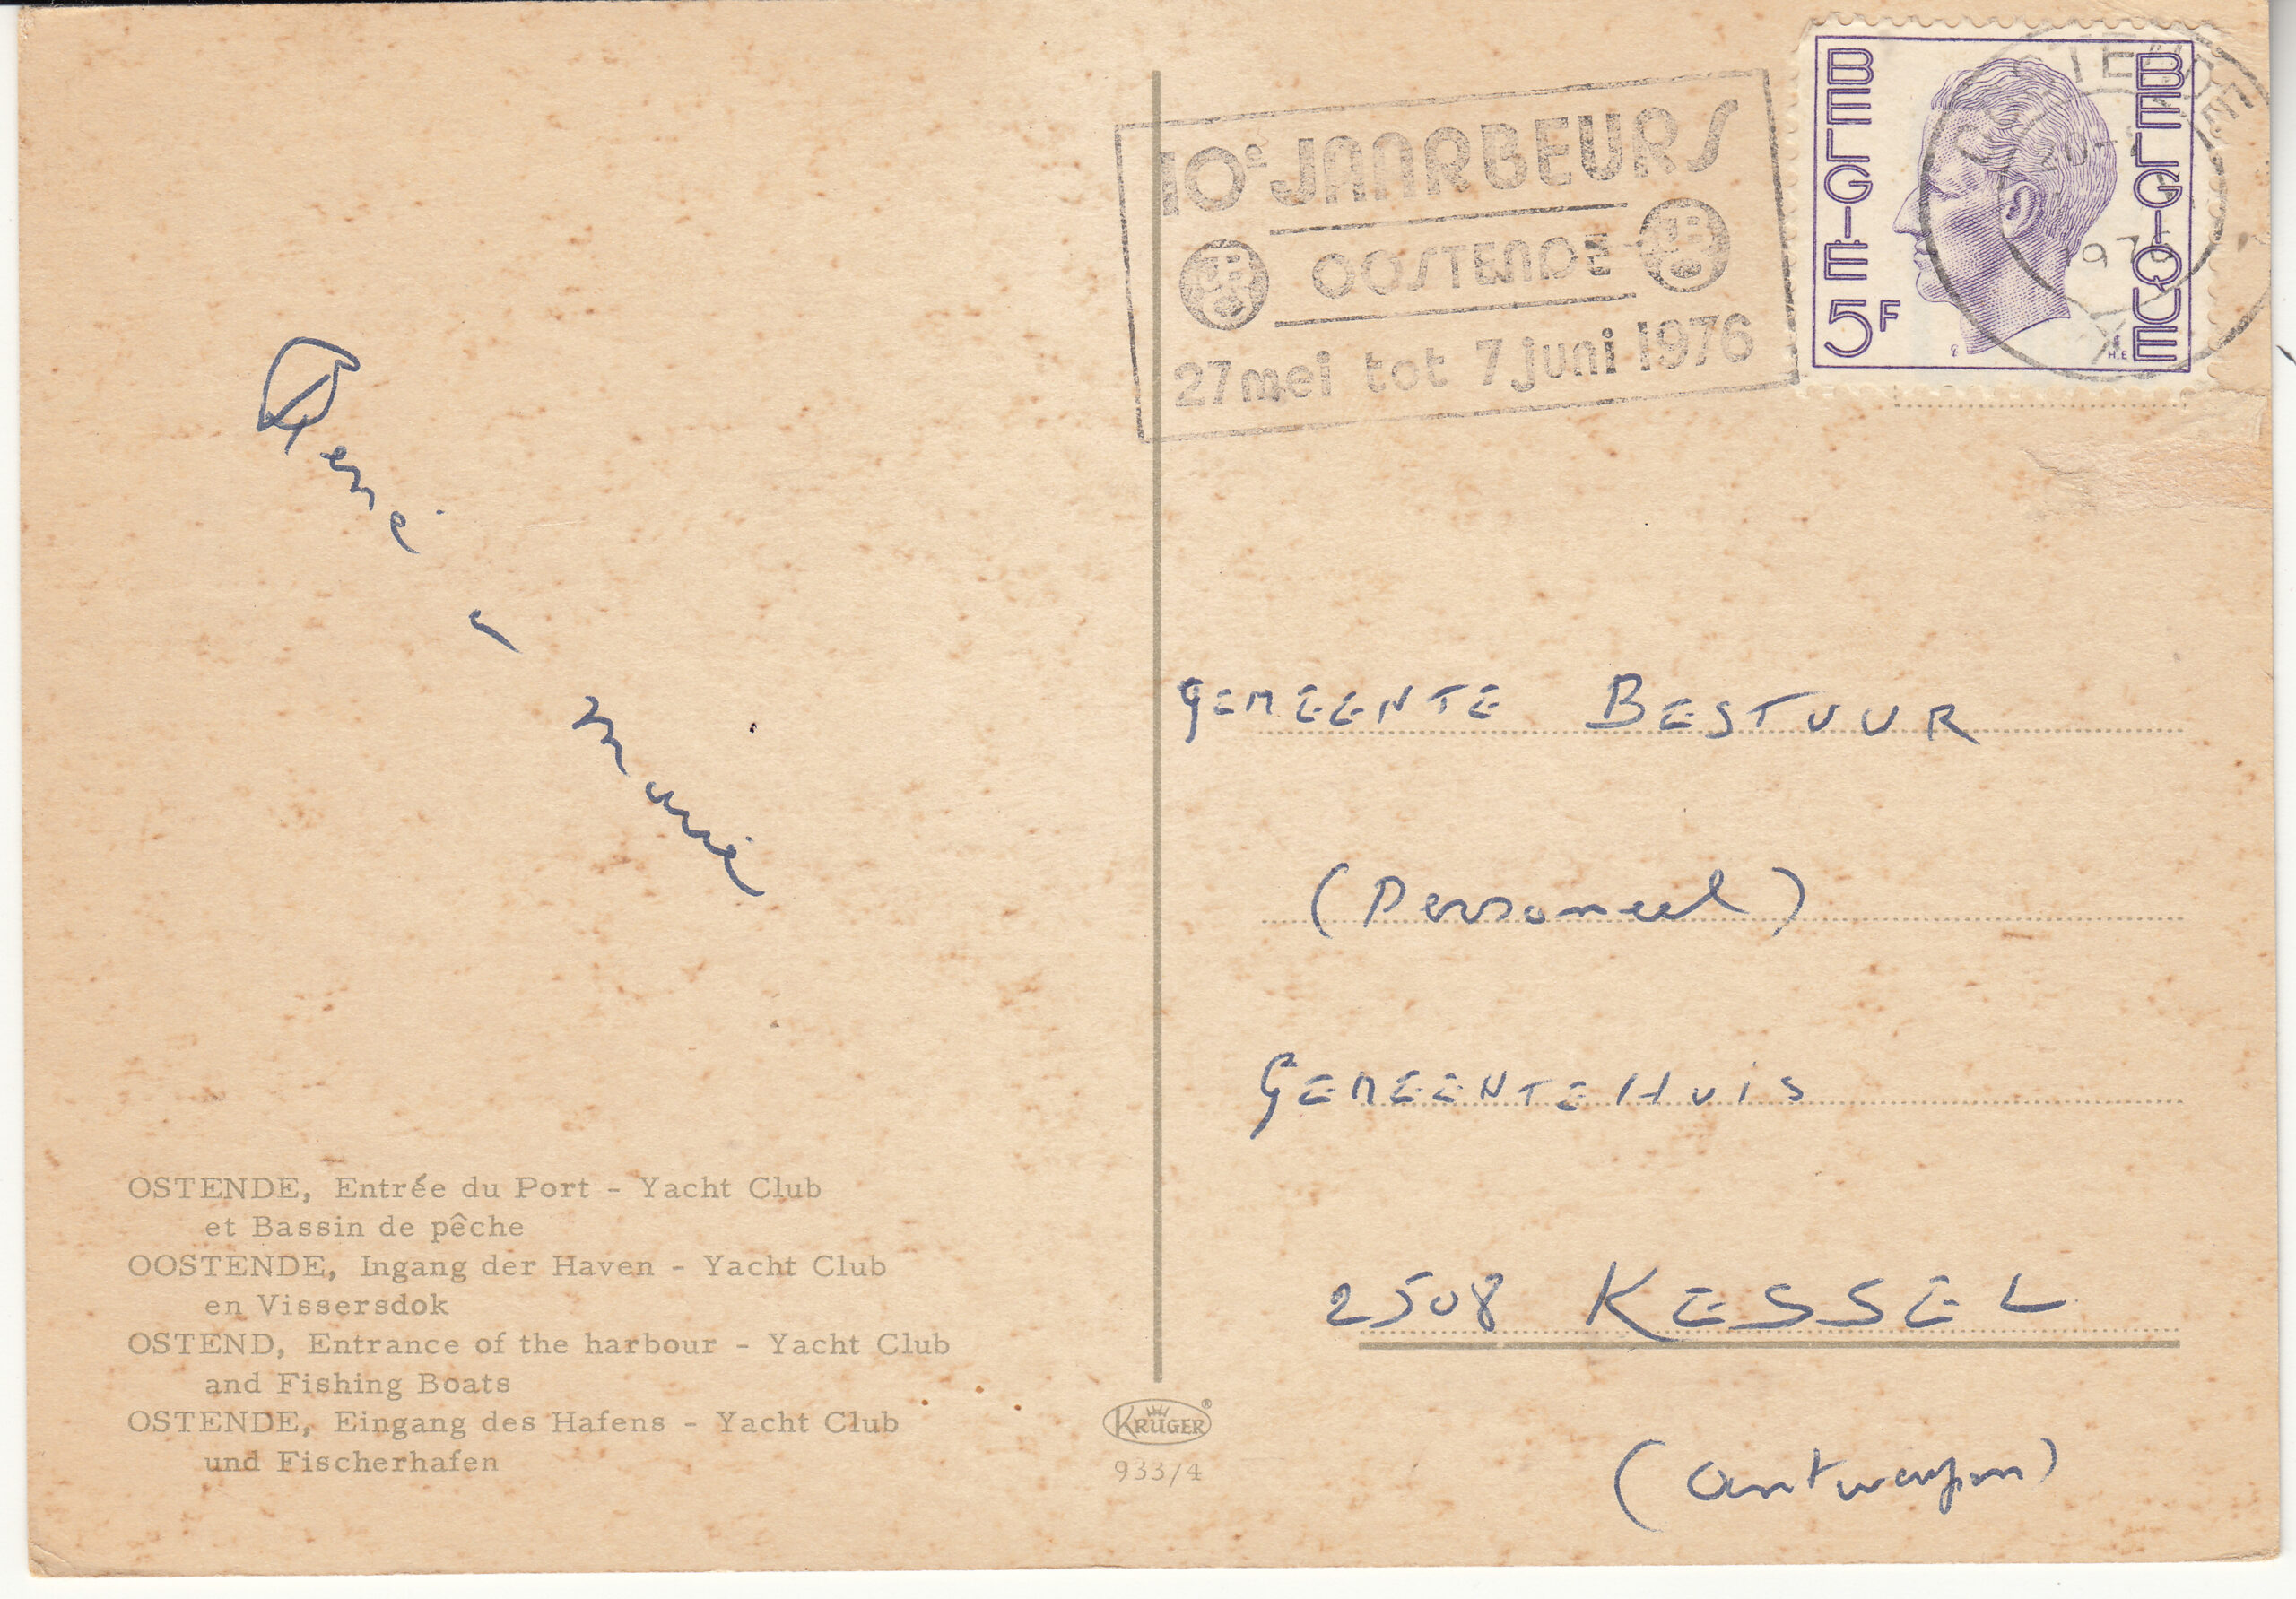 10de JAARBEURS
OOSTENDE
27 mei tot 7 juni 1976
BELGIE
5F
BELGIQUE
1976
X
René - Maria
GEMEENTE BESTUUR
(Personeel)
GEMEENTEHUIS
2508 KESSEL
(Antwerpen)
OSTENDE, Entrée du Port - Yacht Club
et Bassin de pêche
OOSTENDE, Ingang der Haven - Yacht Club
en Vissersdok
OSTEND, Entrance of the harbour - Yacht Club
and Fishing Boats
OSTENDE, Eingang des Hafens - Yacht Club
und Fischerhafen
KRÜGER ®
933/4